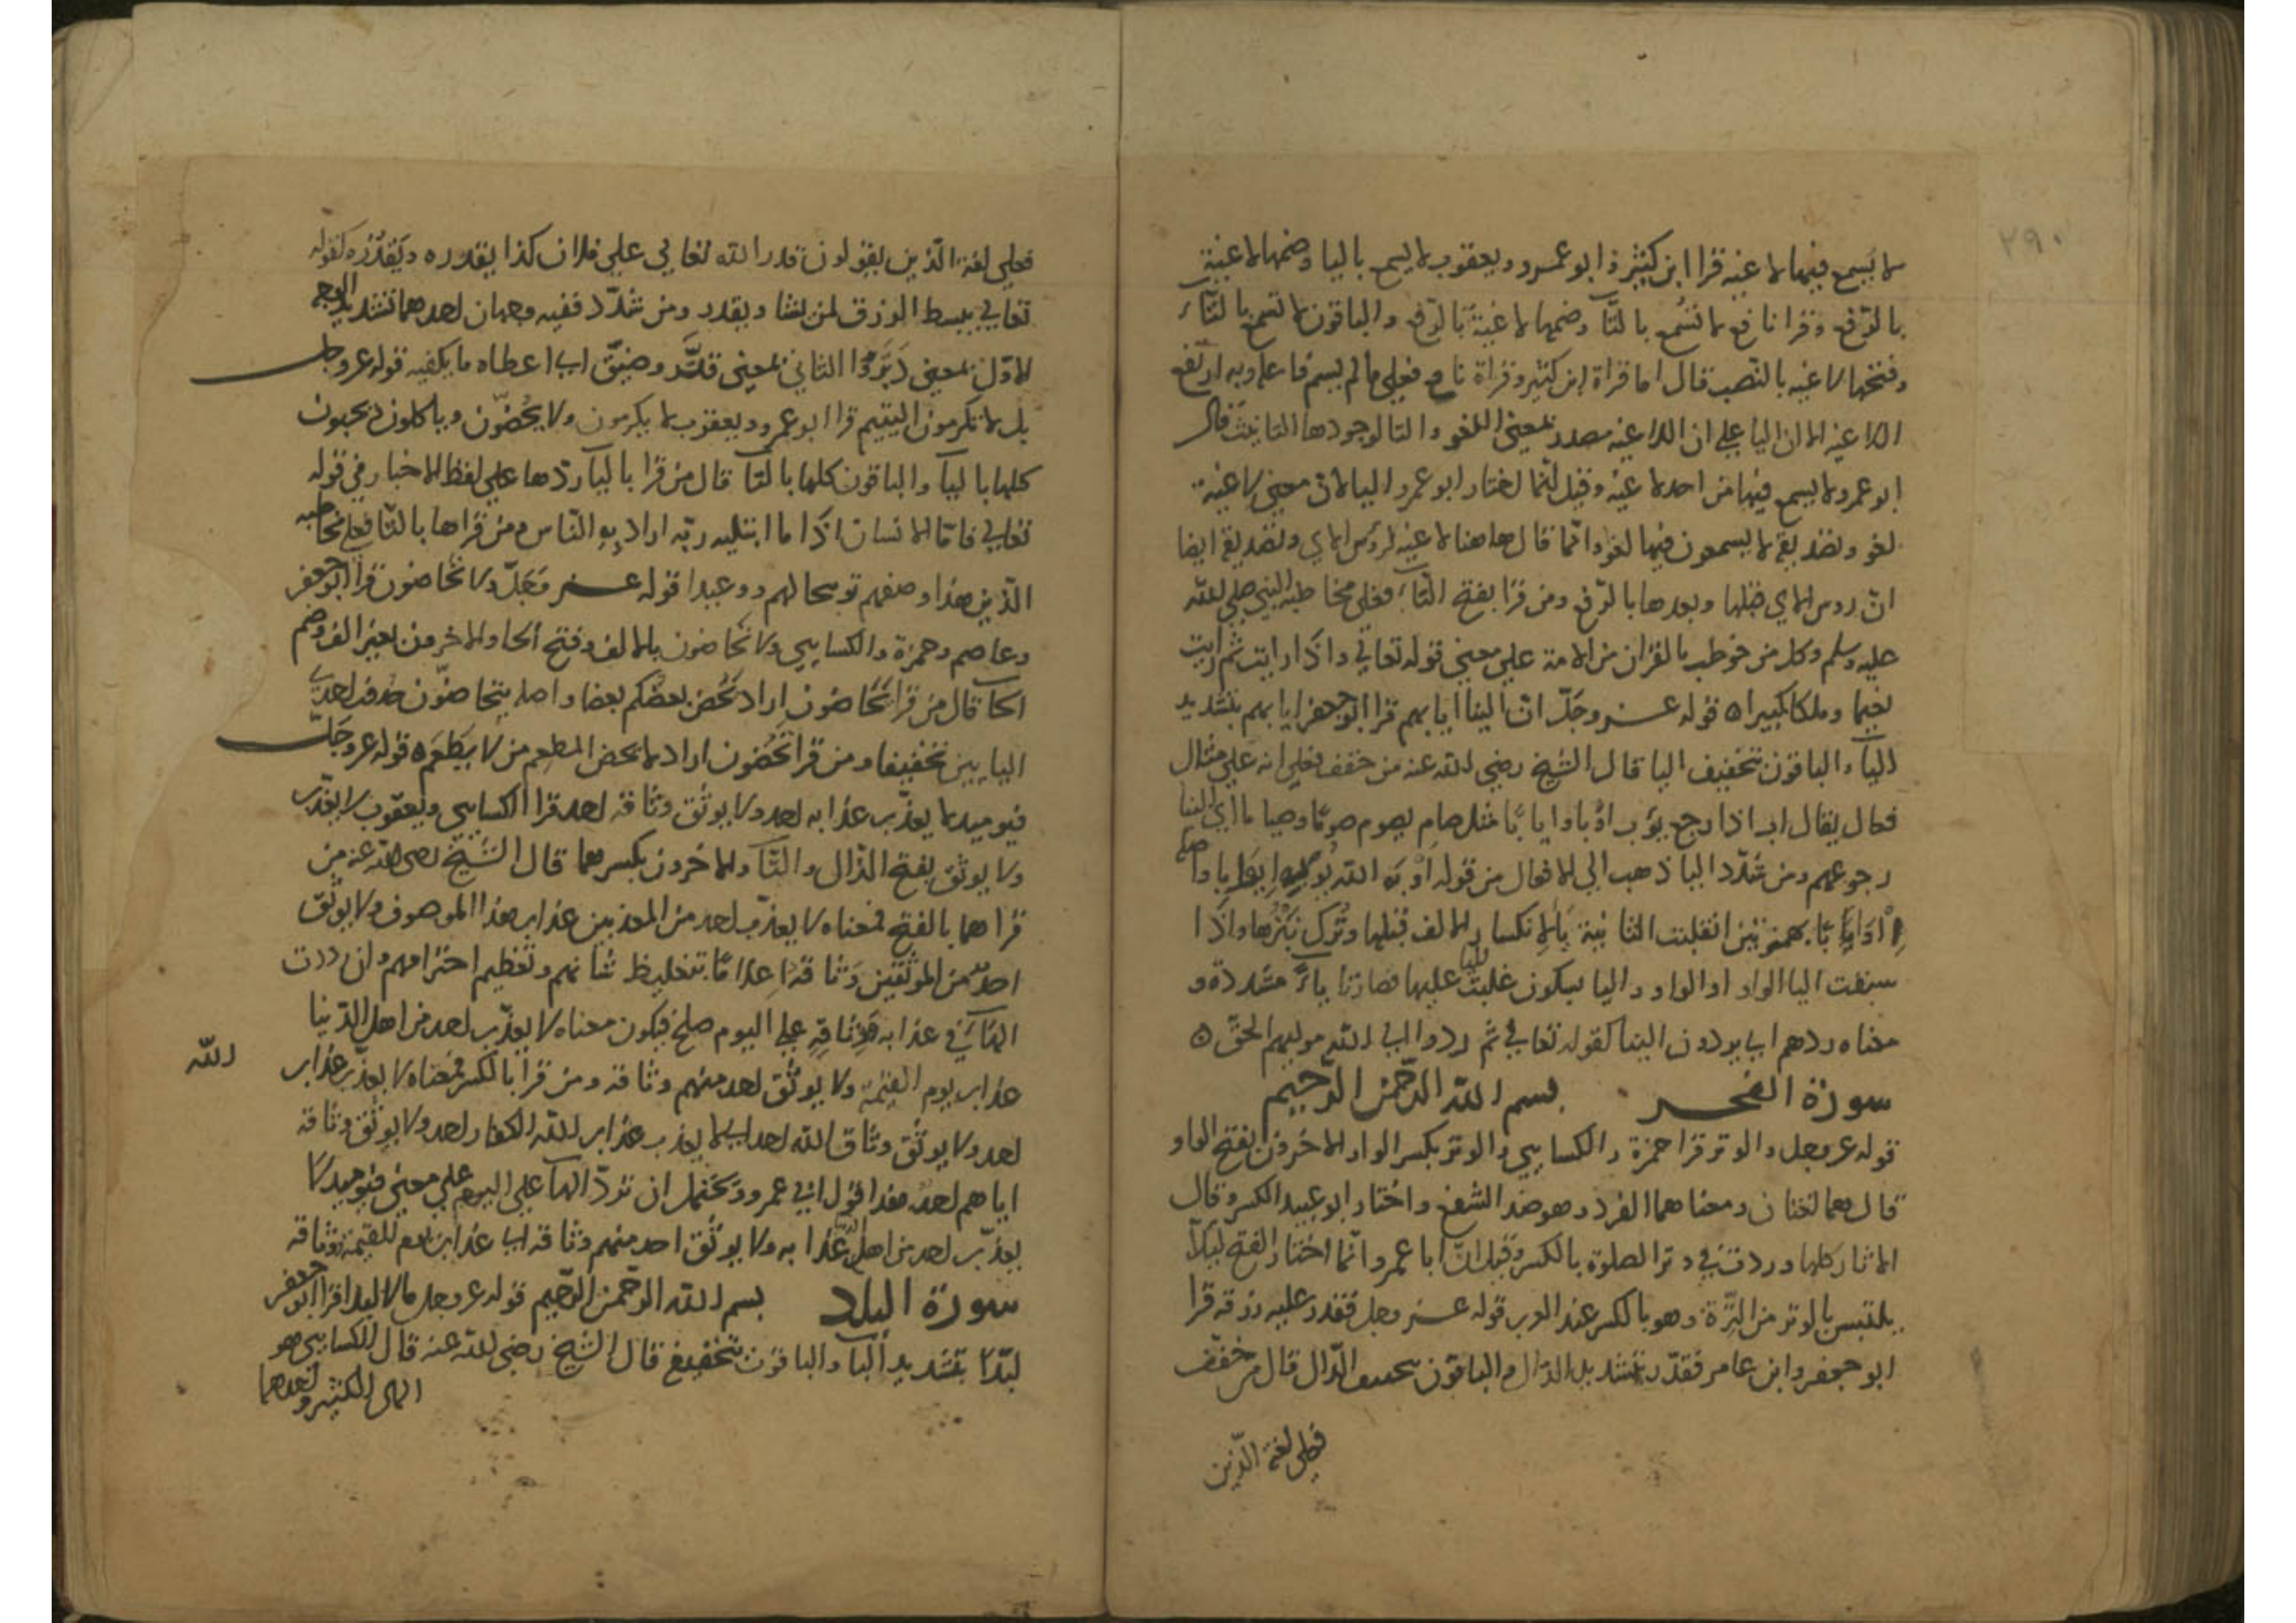 ٢٩٠
لا يسمع فيها لاغيه قرا ابن كثير و ابو عمرو و يعقوب لا يسمع باليا وضمها لاغية
بالرفع وقرا نافع لا تسمع بالتآ وضمها لاغية بالرفع والباقون لا تسمع بالتآء
وفتحها لاغيه بالنصب قال اما قراة ابن كثير وقراة نافع فعلى ما لم يسم فاعله وبه ارتفع
اللاغيه الا ان اليا على ان اللاغيه مصدر بمعنى اللغو والتا لوجودها التانيث قال
ابو عمرو لا يسمع فيها من احد لاغية وقيل انما اختار ابو عمرو اليا لان معنى لاغية
لغو وتقديره لا يسمعون فيها لغو وانما قال هاهنا لاغيه لروس الاي وتقديره ايضا
ان روس الاي قبلها وبعدها بالرفع ومن قرا بفتح التآء فعلى مخاطبه النبي صلى الله
عليه وسلم وكل من خوطب بالقران من الامة على معنى قوله تعالى واذا رايت ثم رايت
نعيما وملكا كبيرا ه قوله عز وجل ان الينا ايابهم قرا ابو جعفر ايابهم بتشديد
اليآ والباقون بتخفيف اليا قال الشيخ رضي الله عنه من خفف فعلى انه على مثال
فعال يقال اب اذا رجع يؤب اوبا وايابا مثل صام يصوم صوما وصياما اي الينا
رجوعهم ومن شدد اليا ذهب الى الافعال من قوله اوبه الله يوبه ايوابا واصله
اأوابا بهمزتين انقلبت الثانية يا لانكسار الالف قبلها وترك نبرها واذا
سبقت اليا الواو او الواو واليا بسكون غلبت اليا عليها فصارتا ياء مشددة و
معناه ردهم اي يردون الينا كقوله تعالى ثم ردوا الى الله موليهم الحق ه
سورة الفجر بسم الله الرحمن الرحيم
قوله عز وجل والوتر قرا حمزة والكسايي والوتر بكسر الواو الاخرون بفتح الواو
قال هما لغتان ومعناهما الفرد وهو ضد الشفع واختار ابو عبيد الكسر وقال
الاثار كلها وردت في وتر الصلوة بالكسر وقيل ان ابا عمرو انما اختار الفتح ليلا
يلتبس بالوتر من الترة وهو بالكسر عند العرب قوله عز وجل فقدر عليه رزقه قرا
ابو جعفر وابن عامر فقدر بتشديد الدال والباقون بتخفيف الدال قال من خفف
فعلى لغة الذين
فعلى لغة الذين يقولون قدر الله تعالى على فلان كذا يقدره ويقدره كقوله
تعالى يبسط الرزق لمن يشا ويقدر ومن شدد ففيه وجهان احدهما تشديد الوجه
الاول بمعنى الثاني بمعنى قتر وضيق اي اعطاه ما يكفيه قوله عز وجل
بل لا تكرمون اليتيم قرا ابو عمرو ويعقوب لا يكرمون ولا يحضون وياكلون ويحبون
كلها باليآ والباقون كلها بالتآ قال من قرا باليآ ردها على لفظ الاخبار في قوله
تعالى فاما الانسان اذا ما ابتليه ربه اراد به الناس ومن قراها بالتا فعلى مخاطبه
الذين هذا وصفهم توبيخا لهم ووعيدا قوله عز وجل ولا تحاضون قرا ابو جعفر
وعاصم وحمزة والكسايي ولا تحاضون بالالف وفتح الحا والاخرون بغير الف وضم
الحآ قال من قرا تحاضون اراد تحض بعضكم بعضا واصله يتحاضون حذف احدى
اليايين تخفيفا ومن قرا تحضون اراد لا يحض المطعم من لا يطعم ه قوله عز وجل
فيوميذ لا يعذب عذابه احد ولا يوثق وثاقه احد قرا الكسايي ويعقوب لا يعذب
ولا يوثق بفتح الذال والثآ والاخرون بكسرهما قال الشيخ رضي الله عنه من
قراهما بالفتح فمعناه لا يعذب احد من المعذبين عذاب هذا الموصوف ولا يوثق
احد من الموثقين وثاقه اعلاما بتغليظ شانهم وتعظيم اجترامهم وان رددت
الهآ في عذابه ووثاقه على اليوم صلح فيكون معناه لا يعذب احد من اهل الدنيا
عذاب يوم القيمة ولا يوثق احد منهم وثاقه ومن قرا بالكسر فمعناه لا يعذب عذاب الله
احد ولا يوثق وثاق الله احد اي لا يعذب عذاب الله الكفار احد ولا يوثق وثاقه
اياهم احد هذا قول ابي عمرو ويحتمل ان ترد الهآ على اليوم على معنى فيوميذ لا
يعذب احد من اهل عذابه ولا يوثق احد منهم وثاقه اي عذاب يوم القيمة ووثاقه
سورة البلد بسم الله الرحمن الرحيم قوله عز وجل مالا لبدا قرا ابو جعفر
لبدا بتشديد البآ والباقون بتخفيف قال الشيخ رضي الله عنه قال الكسايي هو
المال الكثير وبعدهما